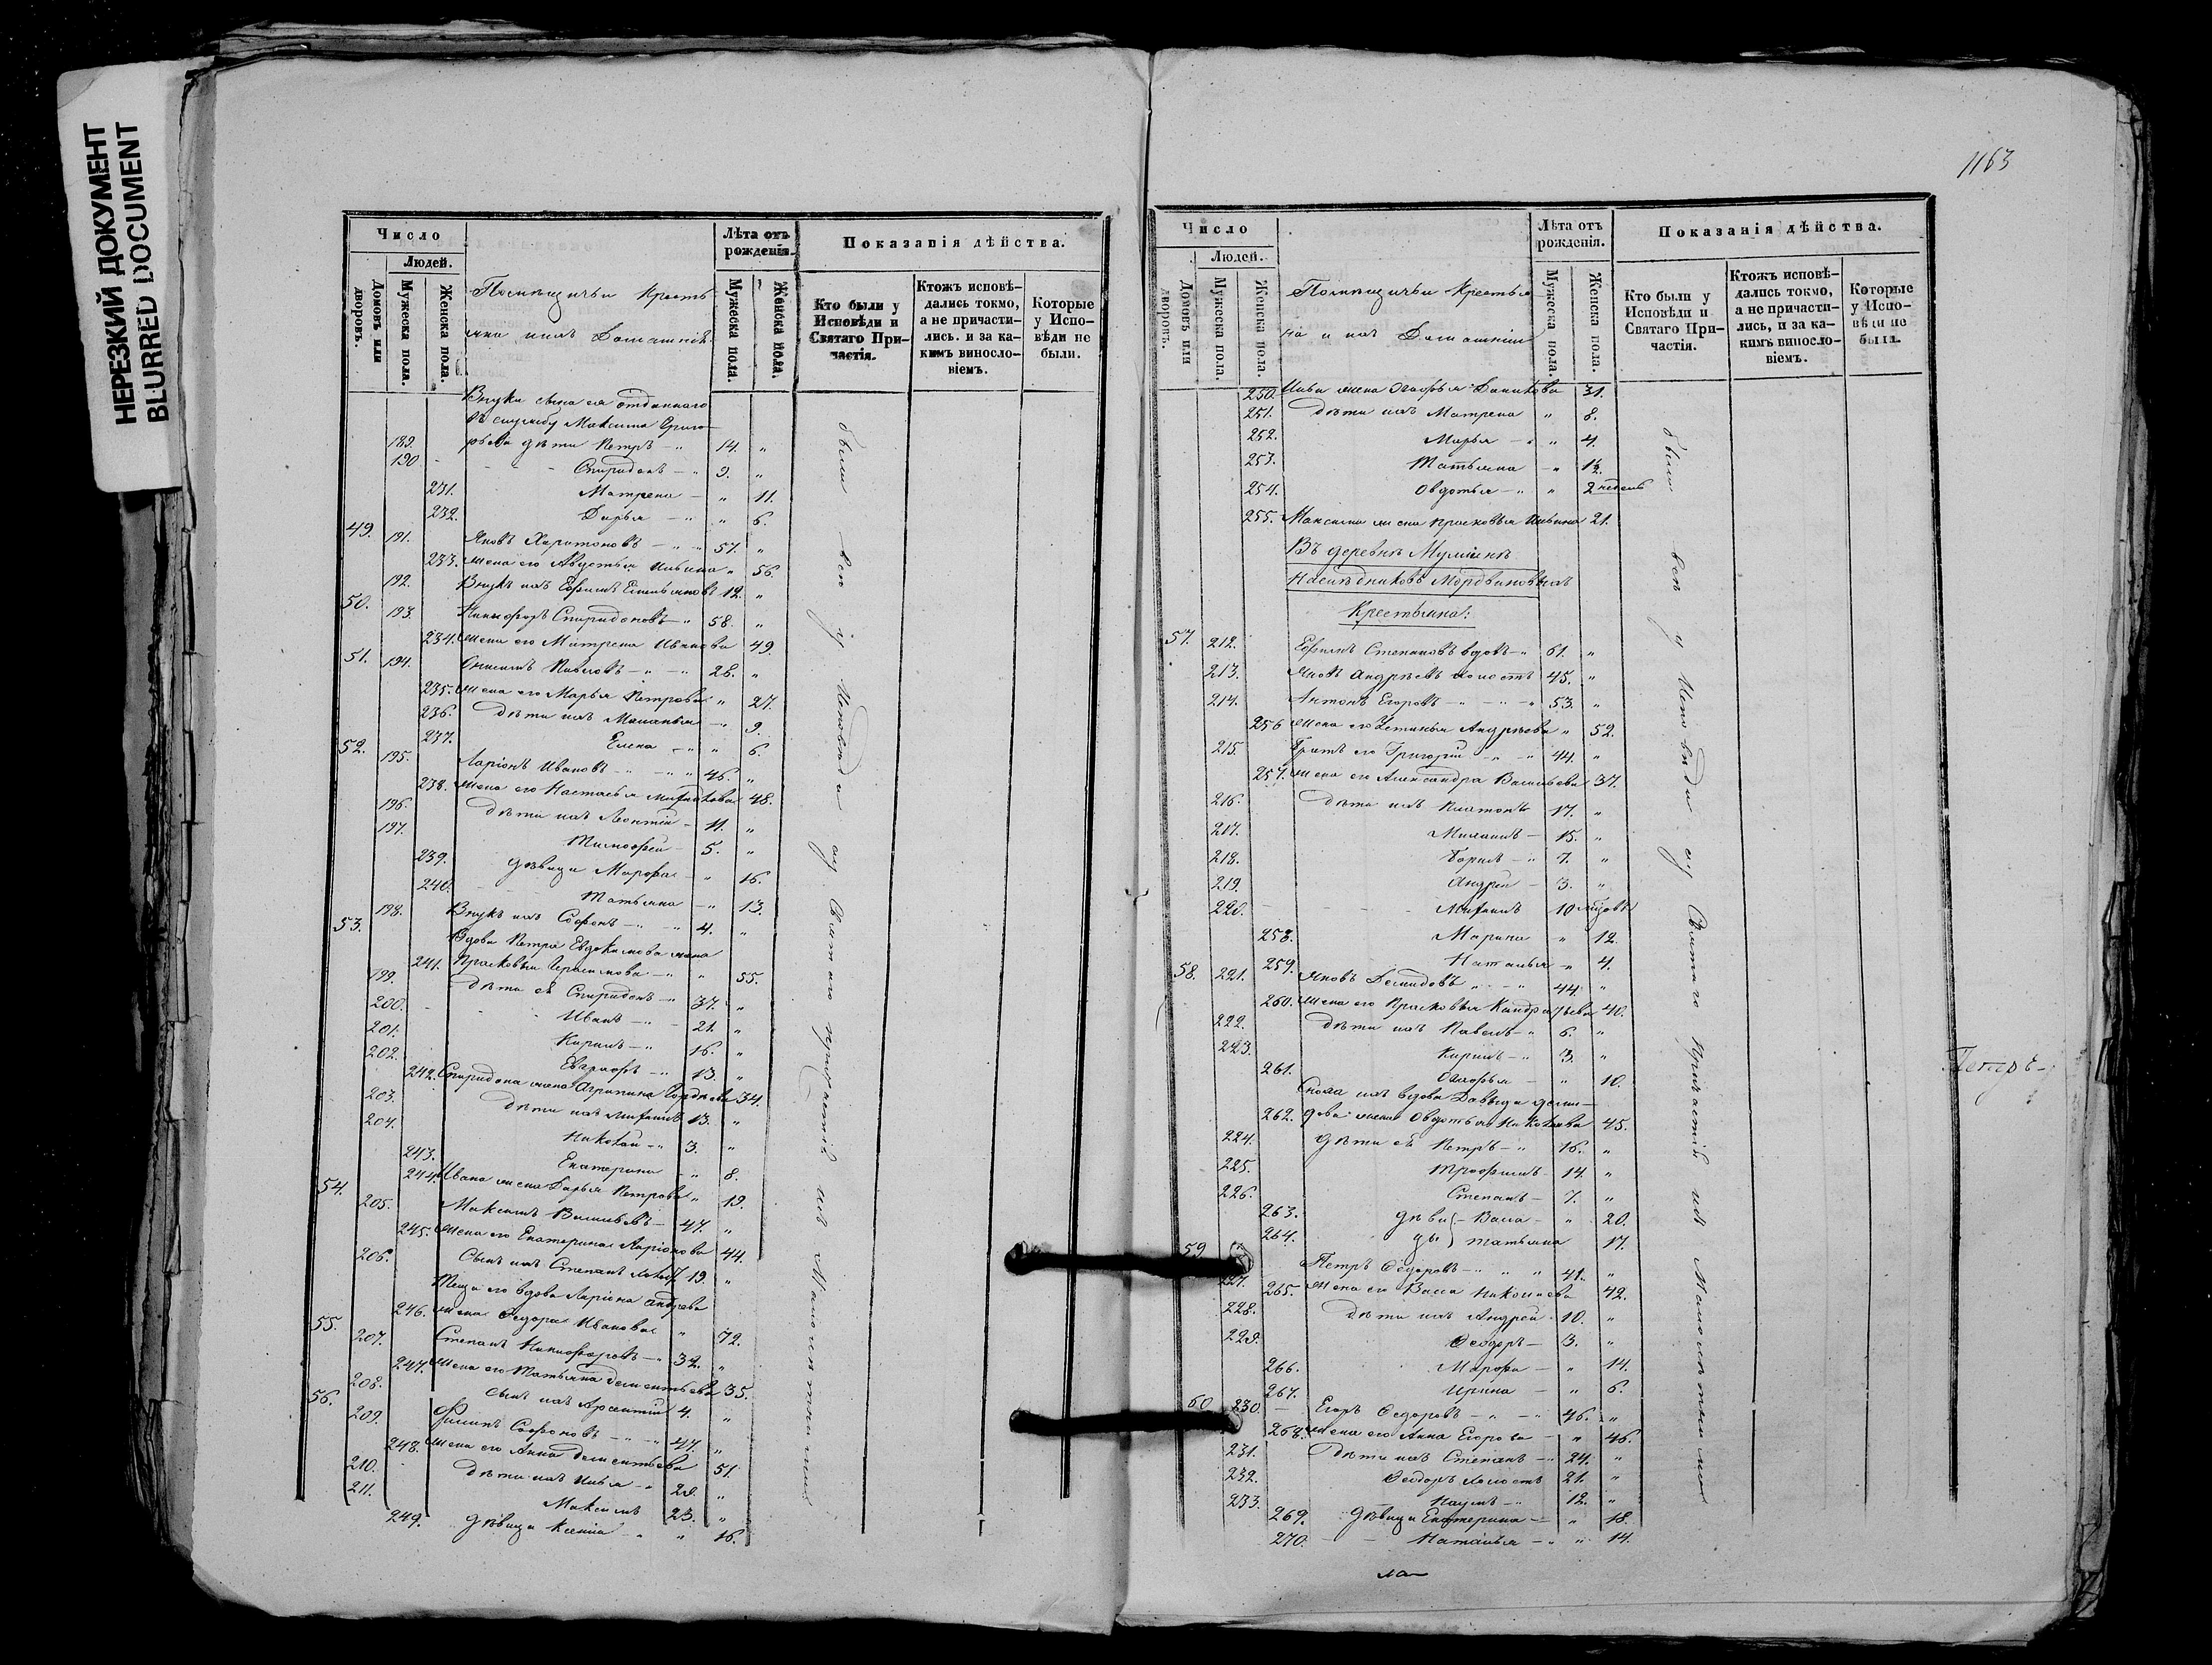 НЕРЕЗКИЙ ДОКУМЕНТ
BLURRED DOCUMENT
Число
Людей.
Домовъ или дворовъ.
Мужеска пола.
Женска пола.
Помѣщичьи Кресть
яне и ихъ Домашніе
Лѣта отъ рожденія.
Мужеска пола.
Женска пола.
Показанія дѣйства.
Кто были у Исповѣди и Святаго Причастія.
Ктожъ исповѣдались токмо, а не причастились. и за какимъ винословіемъ.
Которые у Исповѣди не были.
Внуки сына ея отданнаго
въ службу Максима Григо-
189. рьева дѣти Петръ - " 14. "
190 - - - Спиридонъ - " 9. "
231. Матрена - " 11.
232. Дарья - " " 6.
49. 191. Яковъ Харитоновъ - " " 57. "
233. жена его Авдотья Ильина " 56.
192. Внукъ ихъ Ефимъ Емельяновъ 12. "
50. 193. Никифоръ Спиридоновъ - " 58. "
234. жена его Матрена Иванова 49.
51. 194. Онисимъ Павловъ - " - " 28. "
235. жена его Марья Петрова " 27.
236. Дѣти ихъ Маланья - " 9.
237. Елена - " " 6.
52. 195. Ларіонъ Ивановъ - " - " " 46. "
238. жена его Настасья Михайлова 48.
196. Дѣти ихъ Леонтій - 11. "
197. Тимофей - 5. "
239. дѣвица Марфа - " 16.
240. Татьяна - " 13.
198. Внукъ ихъ Софонъ - " " 4. "
53. Вдова Петра Евдокимова жена
241. Прасковья Герасимова - " " 55.
199. Дѣти ея Спиридонъ - " 37. "
200. - - Иванъ - " - 21. "
201. Кирилъ - " 16. "
202. Евграфъ - " 13. "
242. Спиридона жена Агрипина Гордѣева 34.
203. Дѣти ихъ Михаилъ 13. "
204. Николай - " 3. "
243. Екатерина - " 8.
244. Ивана жена Дарья Петрова " 19.
54. 205. Максимъ Васильевъ - 47. "
245. жена его Екатерина Ларіонова 44.
206. Сынъ ихъ Степанъ холост 19. "
Теща его вдова Ларіона Андреева
246. жена Федора Иванова " 72.
55. 207. Степанъ Никифоровъ - " 32. "
247. жена его Татьяна Дементьева 35.
208. сынъ ихъ Арсентій 4. "
56. 209. Филипъ Софроновъ - " - " 47. "
248. жена его Анна Дементьева 51.
210. Дѣти ихъ Илья - " 29. "
211. Максимъ 23. "
249. дѣвица Ксенія - " " 16.
были всѣ у Исповѣди и у Святаго Причастія
1163
Число
Людей.
Домовъ или дворовъ.
Мужеска пола.
Женска пола.
Помѣщичьи Крестья-
не и ихъ Домашніе
Лѣта отъ рожденія.
Мужеска пола.
Женска пола.
Показанія дѣйства.
Кто были у Исповѣди и Святаго Причастія.
Ктожъ исповѣдались токмо, а не причастились, и за какимъ винословіемъ.
Которые у Исповѣди не были.
250. Ильи жена Агафья Данилова 31.
251. Дѣти ихъ Матрена " 8.
252. Марья - " " 4.
253. Татьяна - " 1½.
254. Овдотья - " " 2 недель
255. Максима жена Прасковья Ильина 21.
Въ деревнѣ
Наслѣдниковъ Мордвиновыхъ
Крестьяне:
57. 212. Ефимъ Степановъ вдовъ - " 61. "
213. Яковъ Андреевъ холостъ 45. "
214. Антонъ Егоровъ - " - " - " 53. "
256 жена его Устинья Андреева " 52.
215. Братъ его Григорій - " - " 44. "
257. жена его Александра Васильева 37.
216. Дѣти ихъ Платонъ 17. "
217. Михаилъ - 15. "
218. Борисъ - " 7. "
219. Андрей - 3. "
220. - - - Михаилъ 10 мѣсяцовъ
258. Марина " 12.
259. Наталья - " 4.
58. 221. Яковъ Демидовъ " - " 44. "
260. жена его Прасковья Кондратьева 40.
222. Дѣти ихъ Павелъ - " 6. "
223. Кирилъ - " 3. "
261. Агафья - " 10.
Сноха ихъ вдова Давыда Деми-
262. дова жена Овдотья Николаева 45.
224. дѣти ея Петръ - " 16. "
225. Трофимъ - 14. "
226. Степанъ - 7. "
263. дѣви- Васса - " 20.
264. цы Татьяна 17.
59. 227. Петръ Федоровъ - " " " 41. "
265. жена его Васса Николаева 42.
228. Дѣти ихъ Андрей 10. "
229. Феодоръ - 3. "
266. Марфа - " 14.
267. Ирина - " 6.
60 230. - Егоръ Федоровъ - " - " 46. "
268. жена его Анна Егорова - " 46.
231. Дѣти ихъ Степанъ - " 24. "
232. Феодоръ холостъ 21. "
233. Наумъ - " 12. "
269. дѣвица Екатерина - " 18.
270. - Наталья - " " 14.
были всѣ у Исповѣди и у Святаго Причастія
Петръ -